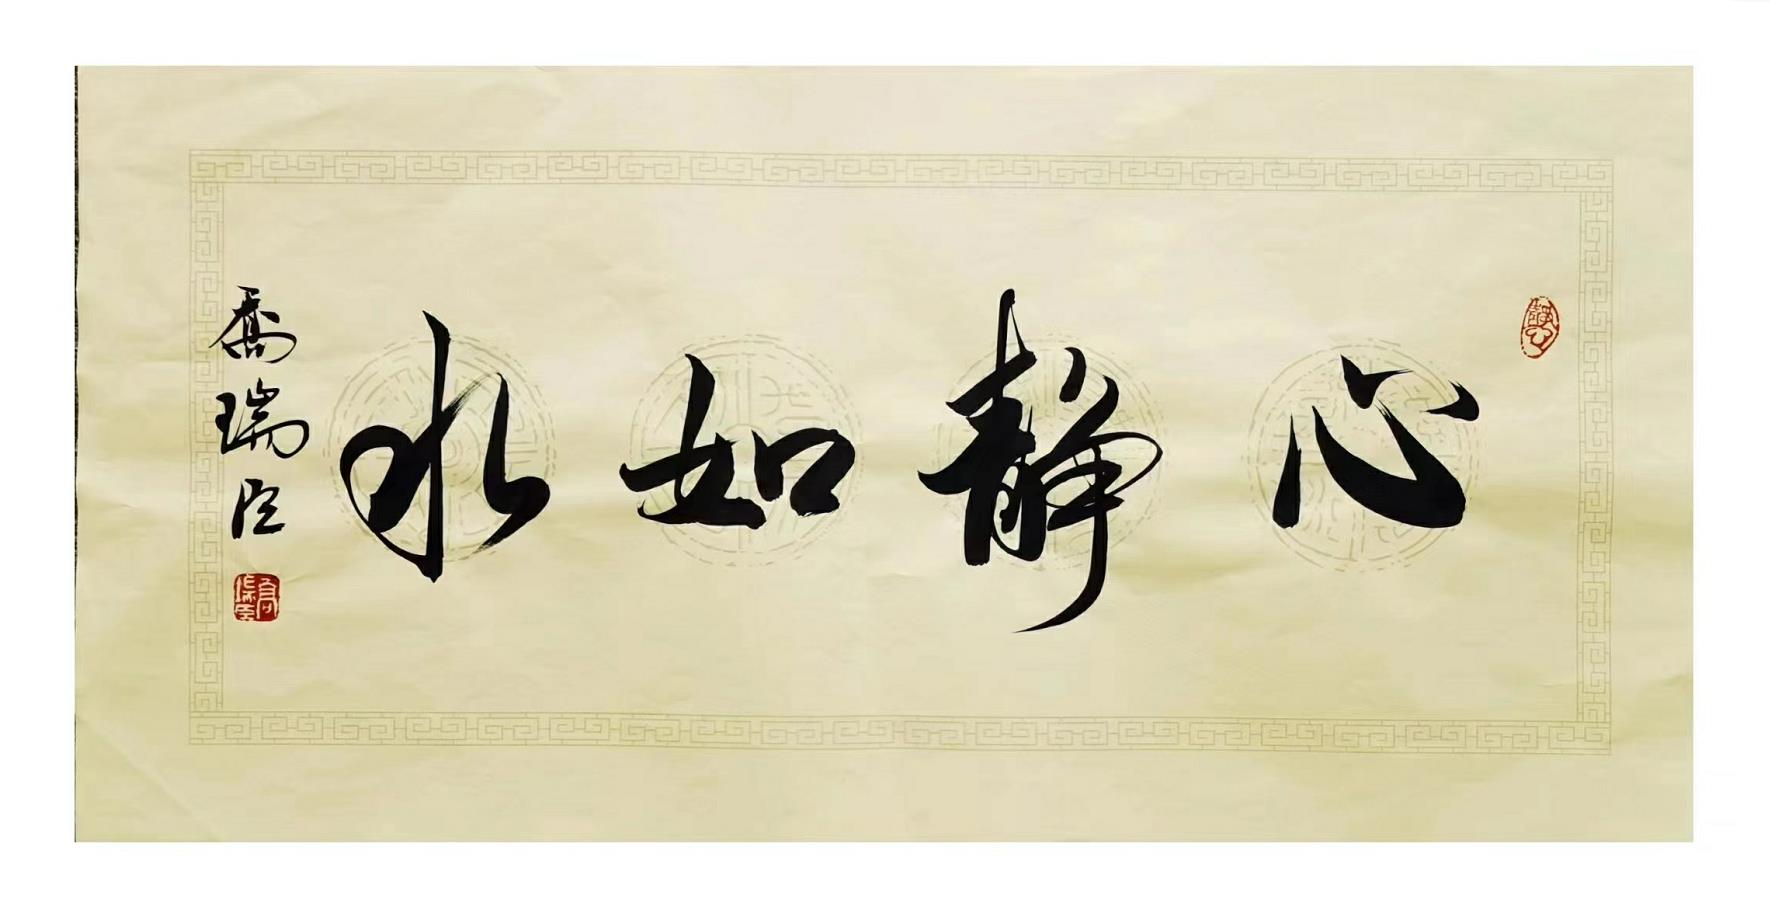 心静如水
喬瑞臣